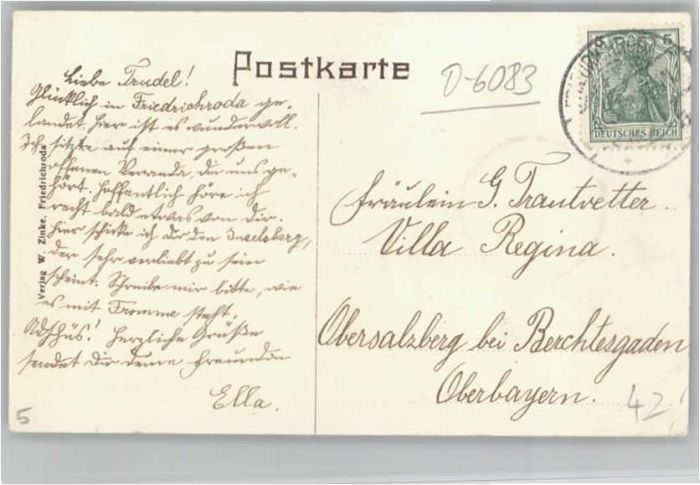 Postkarte
D-6083
Liebe Trudel!
Glücklich in Friedrichroda ge-
landet. Hier ist es wundervoll.
Ich sitze auf einer großen
offenen Veranda, die uns ge-
hört. Hoffentlich höre ich
recht bald etwas von Dir.
Hier schicke ich Dir den Inselsberg,
der sehr verliebt zu sein
scheint. Schreibe mir bitte, wie
es mit Fromme steht.
Adschüs! Herzliche Grüße
sendet Dir Deine Freundin
Ella.
Verlag W. Zinke, Friedrichroda
5
DEUTSCHES REICH
Fräulein G. Trautvetter.
Villa Regina.
Obersalzberg bei Berchtesgaden
Oberbayern.
42
5